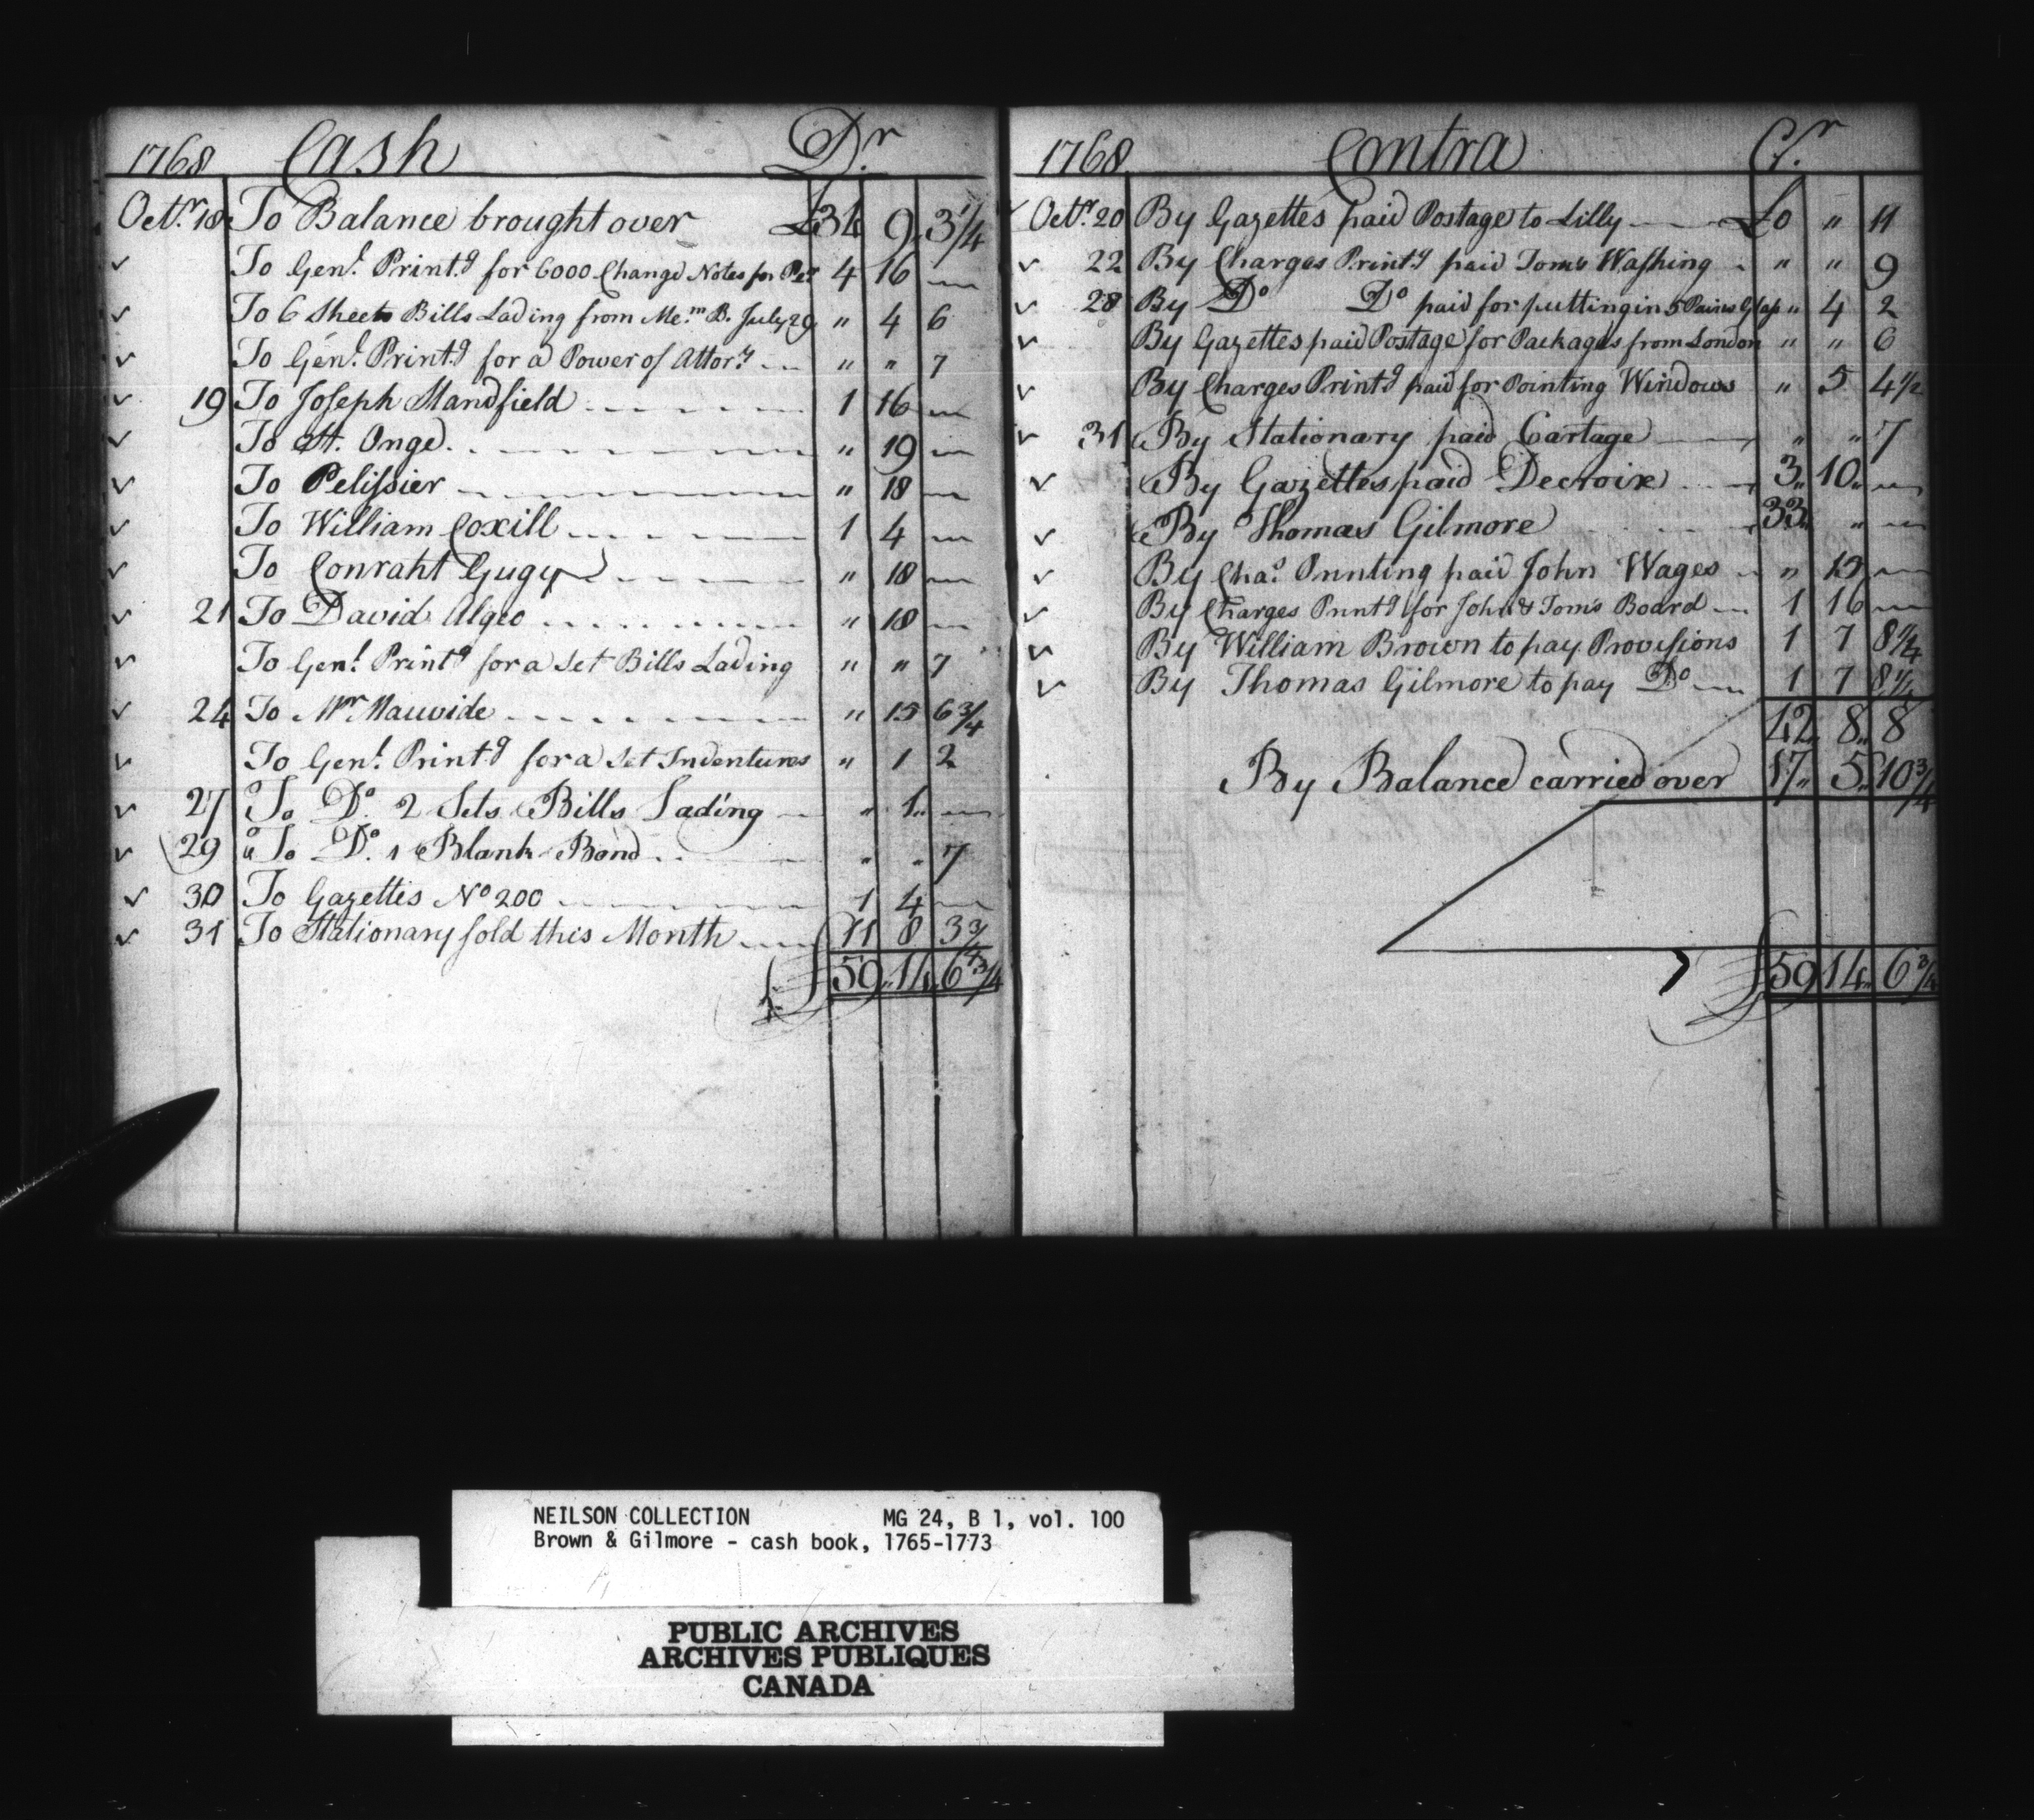 1768 Cash Dr
Octr. 18 To Balance brought over £34 9 3 1/4
To Genl. Printg. for 6000 Change Notes for Pet 4 16 —
To 6 Sheets Bills Lading from Mem. B. July 29 " 4 6
To Genl. Printg. for a Power of Attory. " " 7
19 To Joseph Mandfield 1 16 —
To St. Onge " 19 —
To Pelissier " 18 —
To William Coxill 1 4 —
To Conraht Gugy " 18 —
21 To David Algeo " 18 —
To Genl. Printg. for a Set Bills Lading " " 7
24 To Mr. Mauvide " 15 6 3/4
To Genl. Printg. for a Set Indentures " 1 2
27 To Do. 2 Sets Bills Lading " 1 —
29 To Do. 1 Blank Bond " " 7
30 To Gazettes No 200 1 4 —
31 To Stationary sold this Month 11 8 3 3/4
£59 14 6 3/4
1768 Contra Cr.
Octr. 20 By Gazettes paid Postage to Lilly £0 " 11
22 By Charges Printg. paid Tom's Washing " " 9
28 By Do Do paid for putting in 5 Pains Glass " 4 2
By Gazettes paid Postage for Packages from London " " 6
By Charges Printg. paid for Pointing Windows " 5 4 1/2
31 By Stationary paid Cartage " " 7
By Gazettes paid Decroix 3 10 —
By Thomas Gilmore 33 " —
By Chas. Printing paid John Wages " 15 —
By Charges Printg. for John & Tom's Board 1 16 —
By William Brown to pay Provisions 1 7 8 1/4
By Thomas Gilmore to pay Do 1 7 8 1/4
42 8 8
By Balance carried over 17 5 10 3/4
£59 14 6 3/4
NEILSON COLLECTION MG 24, B 1, vol. 100
Brown & Gilmore - cash book, 1765-1773
PUBLIC ARCHIVES
ARCHIVES PUBLIQUES
CANADA